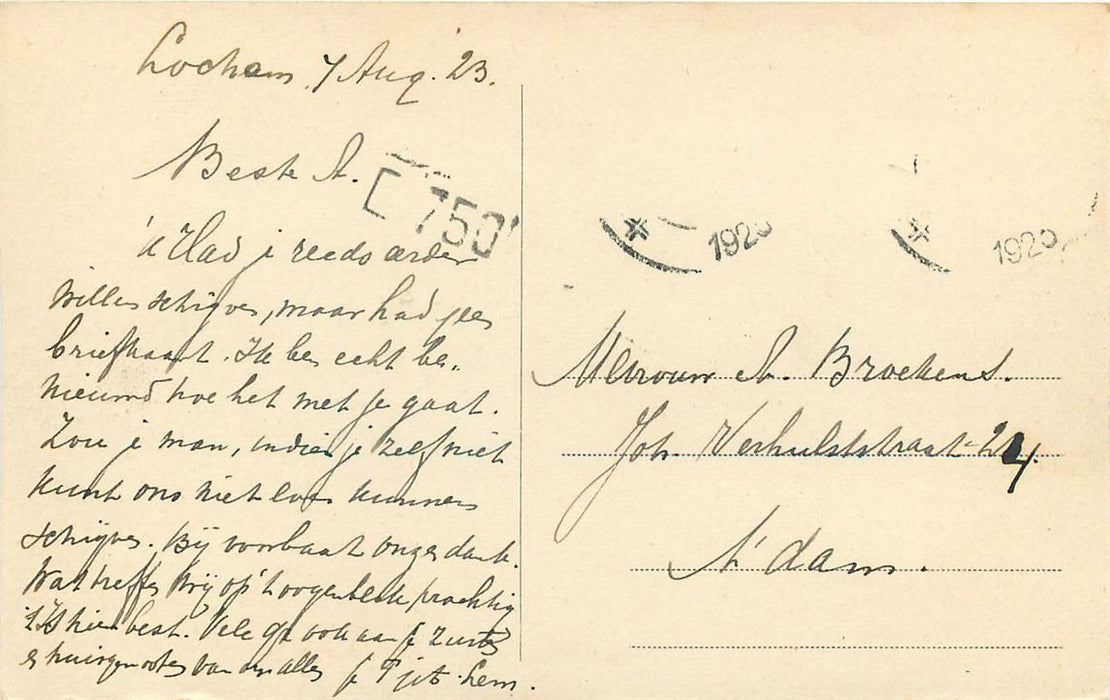 Lochem, 7 Aug. 23.
Beste A.
C 750
'k Had je reeds eerder
willen schrijven, maar had geen
briefkaart. Ik ben echt be-
nieuwd hoe het met je gaat.
Zou je man, indien je zelf niet
kunt ons niet even kunnen
schrijven. Bij voorbaat onzen dank.
Wat treffen wij op 't oogenblik prachtig
't Is hier best. Vele gr. ook aan je zuster
en huisgenooten van ons allen je
1923
1923
Mevrouw A. Broekens.
Joh. Verhulststraat 24.
A'dam.